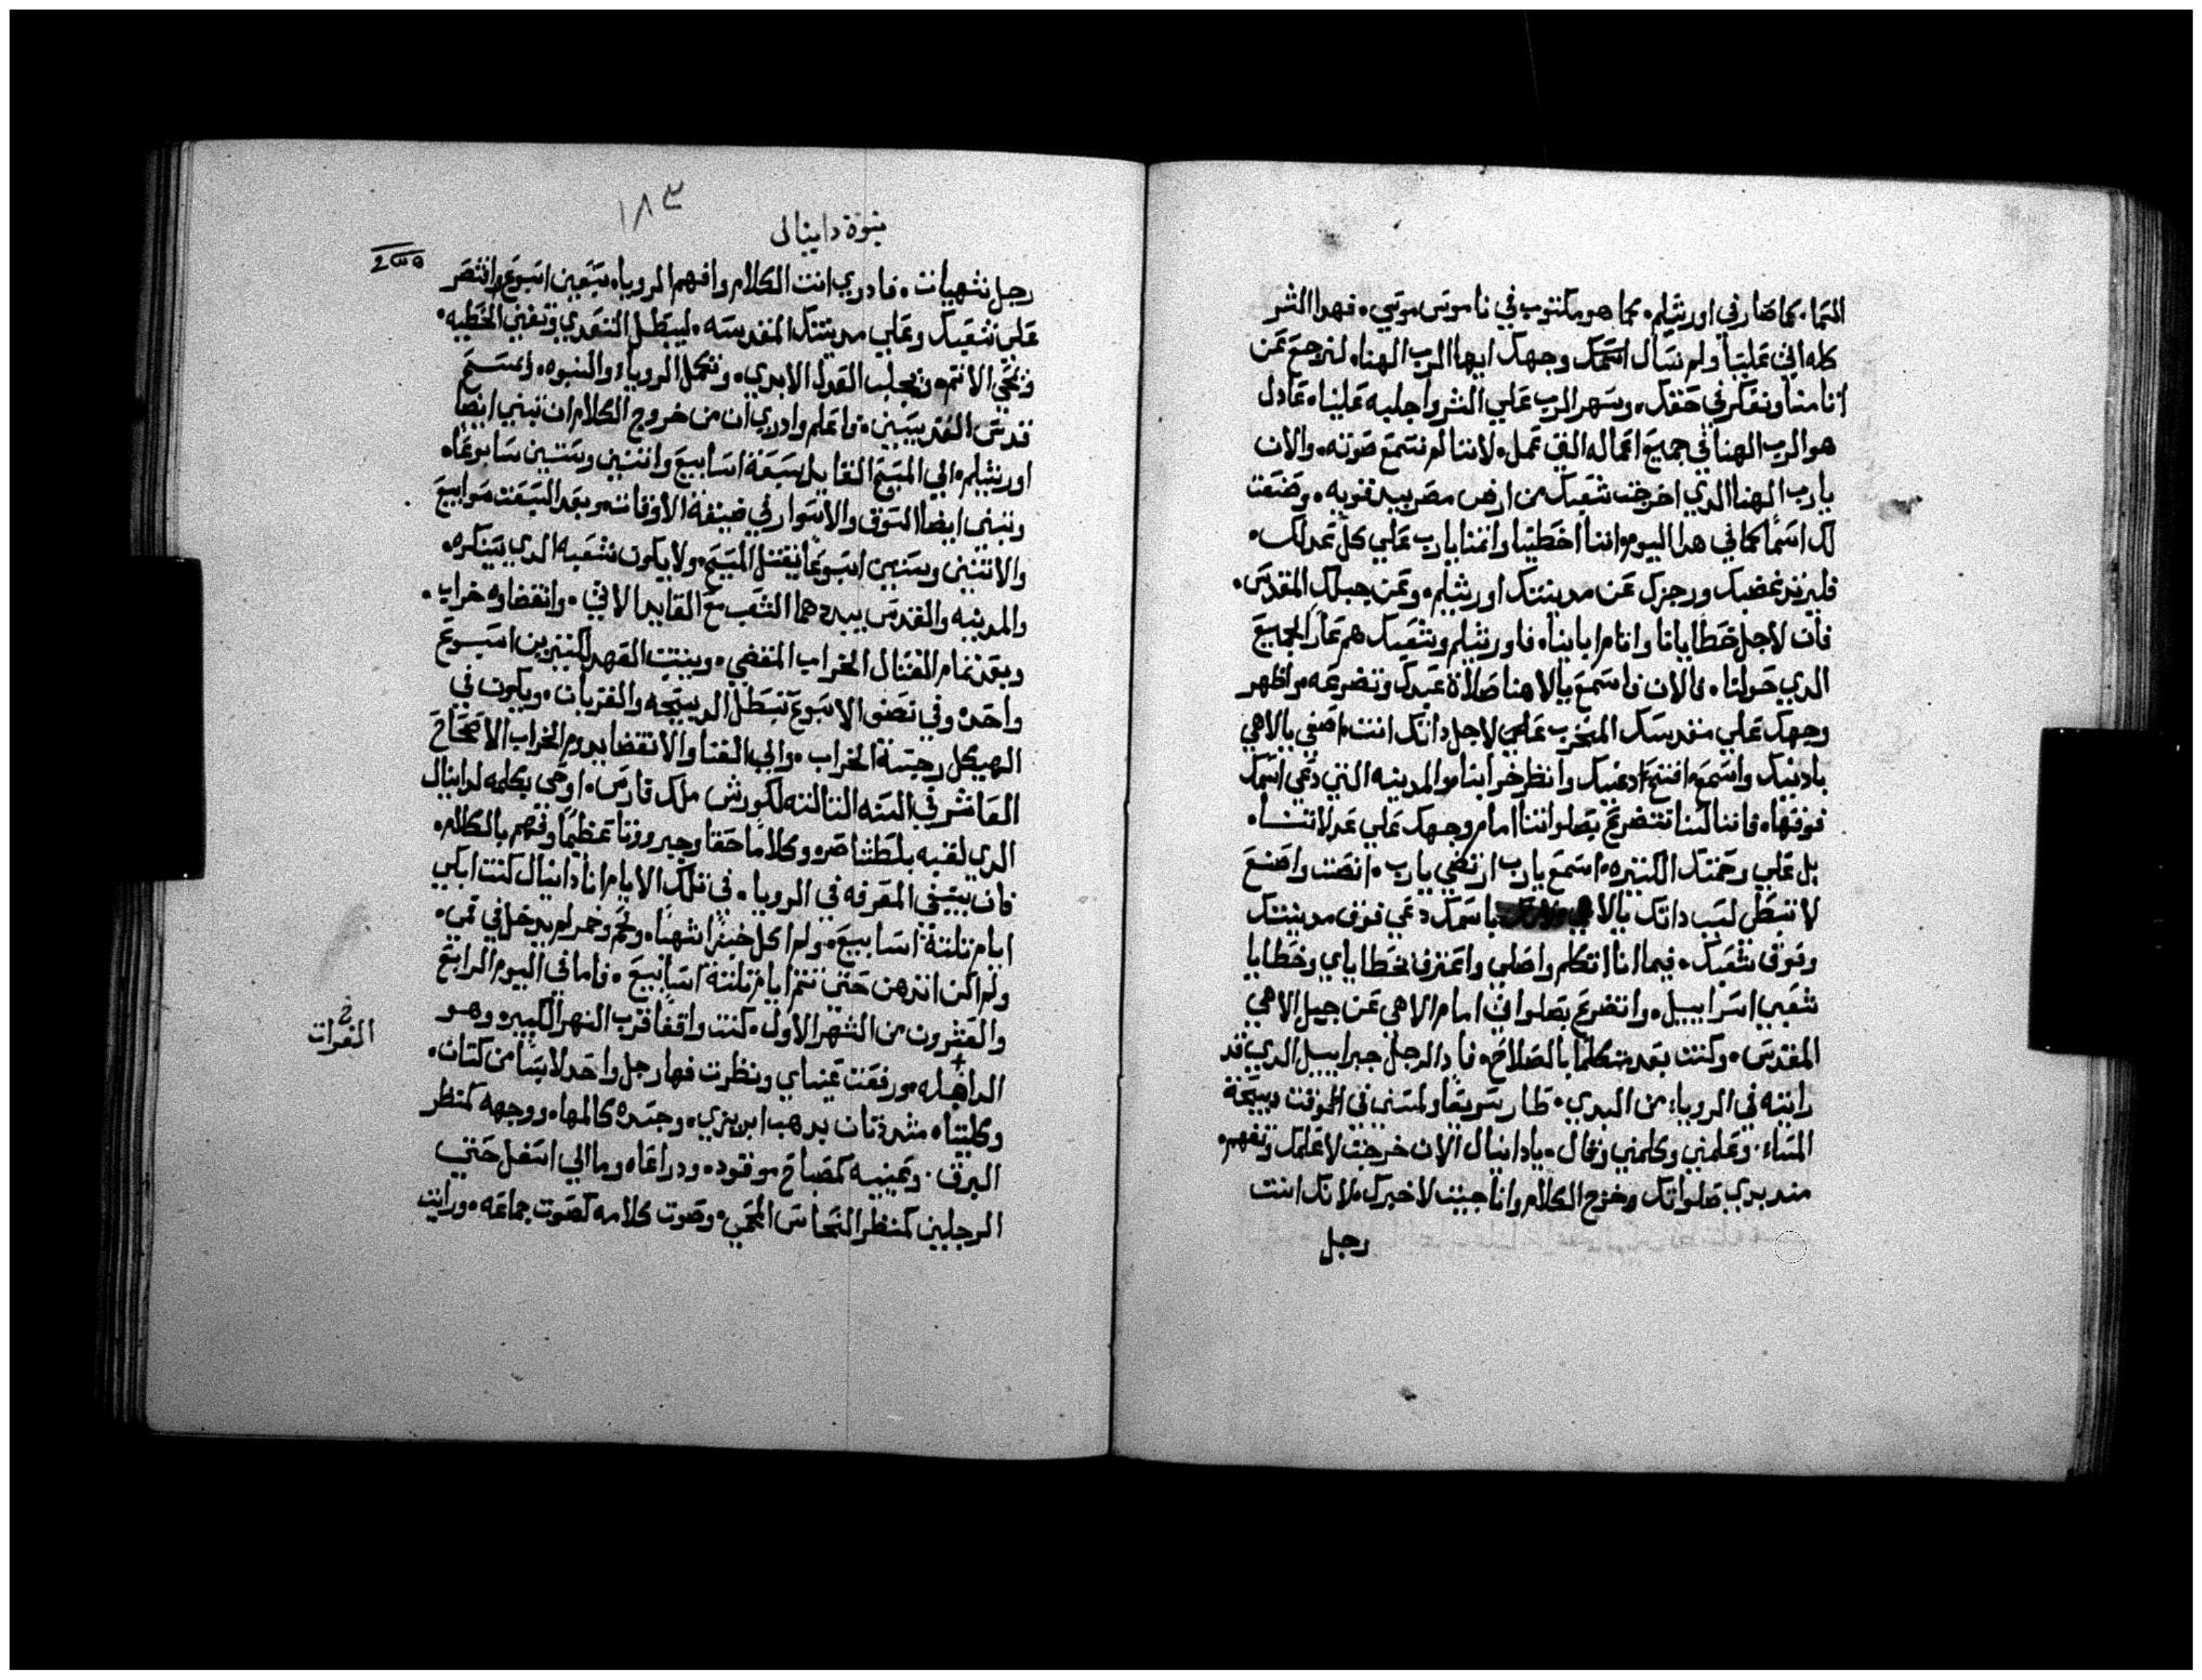 السما. كما صار في اورشليم. كما هو مكتوب في ناموس موسي. فهدا الشر
كله اتي علينا ولم نسال اسمك وجهك ايها الرب الهنا. لنرجع عن
اثامنا ونفكر في حقك. وسهر الرب علي الشر واجلبه علينا. عادل
هو الرب الهنا في جميع اعماله التي عمل. لاننا لم نسمع صوته. والان
يارب الهنا الدي اخرجت شعبك من ارض مصر بيد قويه. وصنعت
لك اسمًا كما في هدا اليوم. اننا اخطينا واتمنا يارب علي كل عدلك.
فليرتد غضبك ورجزك عن مدينتك اورشليم. وعن جبلك المقدس.
فان لاجل خطايانا واتام ابائنا. فاورشليم وشعبك هم عار الجميع
الدي حولنا. فالان فاسمع يالاهنا صلاة عبدك وتضرعه. واظهر
وجهك علي مقدسك المتخرب علي لاجل داتك انت. اصغي يالاهي
بادنيك واسمع. افتح ادعنيك وانظر خرابنا. والمدينه التي دعي اسمك
فوقها. فاننا لسنا نتضرع بصلواتنا امام وجهك علي عدلاتنا.
بل علي رحمتك الكتيره. اسمع يارب ارتضي يارب. انصت واصنع
لا تبطل لسبب داتك يالاهي باسمك دعي فوق مدينتك
وفوق شعبك. فيما انا اتكلم واصلي واعترف بخطاياي وخطايا
شعبي اسراييل. واتضرع بصلواتي امام الاهي عن جبل الاهي
المقدس. وكنت بعد متكلمًا بالصلاة. فاد الرجل جبراييل الدي قد
رايته في الرويا. من البدي. طار سريعًا ولمسني في الوقت دبيحة
المساء. وعلمني وكلمني وقال. يادانيال الان خرجت لاعلمك وتفهم.
مند بدي صلواتك وخرج الكلام وانا جيت لاخبرك. لانك انت
رجل
١٨٣
نبوة دانيال
رجل شهيات. فادري انت الكلام وافهم الرويا. سبعين اسبوع وانتصر
علي شعبك وعلي مدينتك المقدسه. ليبطل التعدي وتفني الخطيه.
وتمحي الاتم. ويجلب العدل الابدي. وتكمل الرويا. والنبوه. ويمسح
قدس القديسين. واعلم وادري ان من خروج الكلام ان تبني ايضًا
اورشليم. الي المسيح القايد سبعة اسابيع واتنين وستين سابوعًا.
وتبني ايضا السوق والاسوار في ضيقة الاوقات. وبعد السبعت سوابيع
والاتنين وستين اسبوعًا يقتل المسيح. ولا يكون شعبه الدي سينكره.
والمدينه والقدس يبيدهما الشعب مع القايد الاتي. وانقضاوه خراب.
وبعد تمام القتال الخراب المنقضي. ويتبت العهد لكتيرين اسبوع
واحد. وفي نصف الاسبوع تبطل الدبيحه والقربان. ويكون في
الهيكل رجسة الخراب. والي الفنا والانقضا يدوم الخراب الاصحاح
العاشر في السنه التالته لكورش ملك فارس. اوحي بكلمه لدانيال
الدي لقبه بلطشاصر. وكلامًا حقًا وجبروتًا عظيمًا وفهم بالكلام.
فان ينبغي المعرفه في الرويا. في تلك الايام انا دانيال كنت ابكي
ايام تلتة اسابيع. ولم اكل خبزًا شهيًا. ولحم وخمر لم يدخل في فمي.
ولم اكن اندهن حتي تتم ايام تلتة اسابيع. فاما في اليوم الرابع
والعشرون من الشهر الاول. كنت واقفًا قرب النهر الكبير. وهو
الداهله. ورفعت عيناي ونظرت فها رجل واحد لابسًا من كتان.
وكليتاه مشدودتان بدهب ابريزي. وجسده كالمها. ووجهه كمنظر
البرق. وعينيه كمصباح موقود. ودراعاه وما الي اسفل حتي
الرجلين كمنظر النحاس المحمي. وصوت كلامه كصوت جماعه. ورايت
الفرات